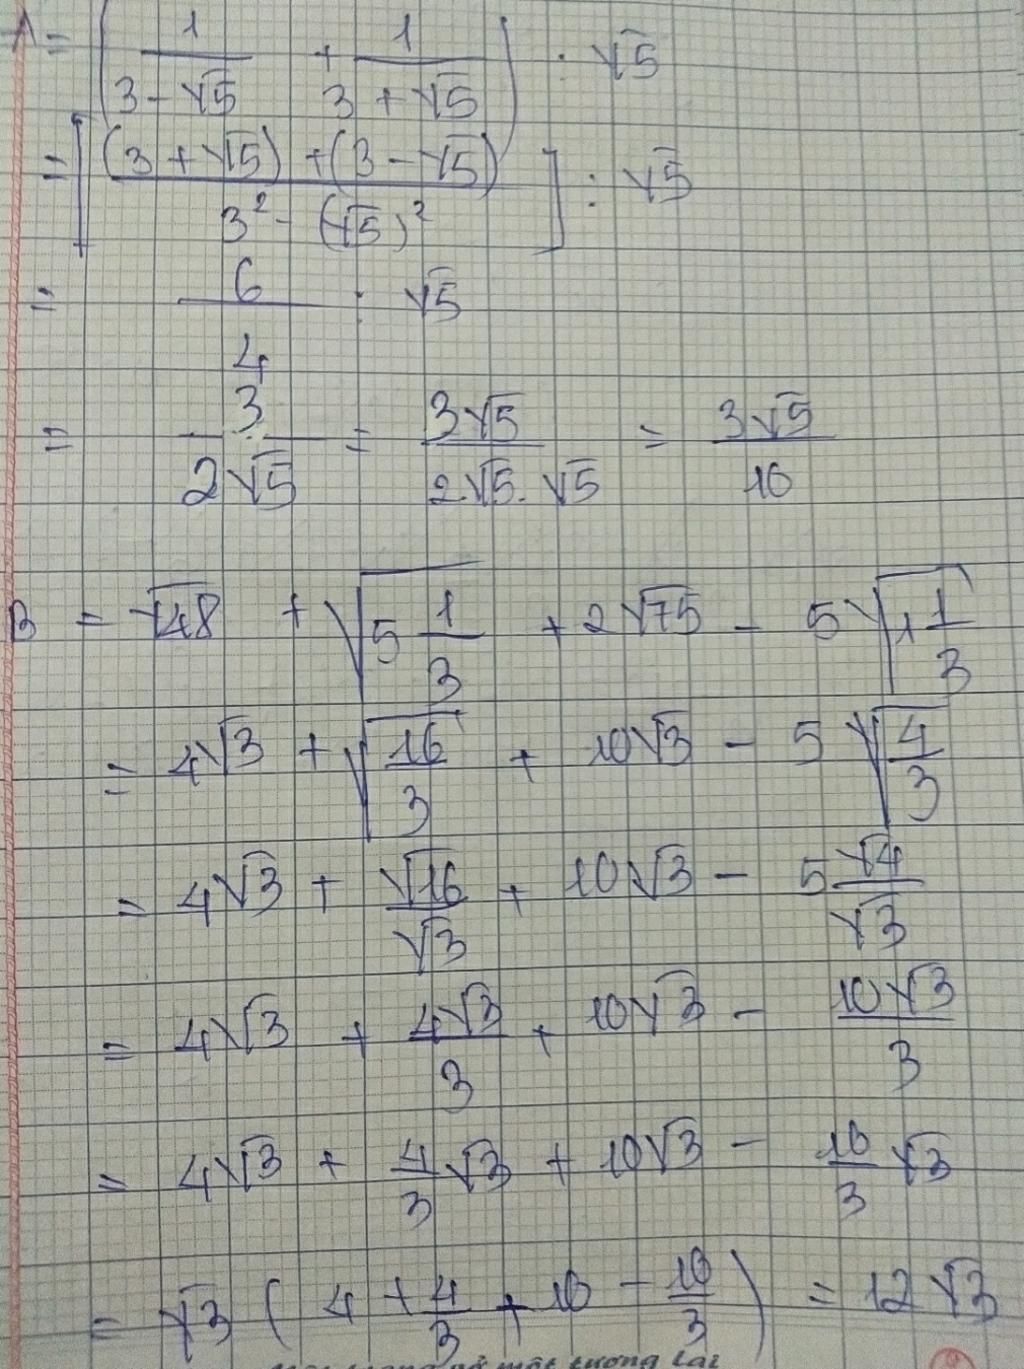 A = ( 1/(3 - √5) + 1/(3 + √5) ) : √5
= [ ((3 + √5) + (3 - √5)) / (3² - (√5)²) ] : √5
= 6/4 : √5
= 3/(2√5) = 3√5/(2√5.√5) = 3√5/10
B = √48 + √(5 1/3) + 2√75 - 5√(1 1/3)
= 4√3 + √(16/3) + 10√3 - 5√(4/3)
= 4√3 + √16/√3 + 10√3 - 5 √4/√3
= 4√3 + 4√3/3 + 10√3 - 10√3/3
= 4√3 + 4/3 √3 + 10√3 - 10/3 √3
= √3 ( 4 + 4/3 + 10 - 10/3 ) = 12√3
một tương lai